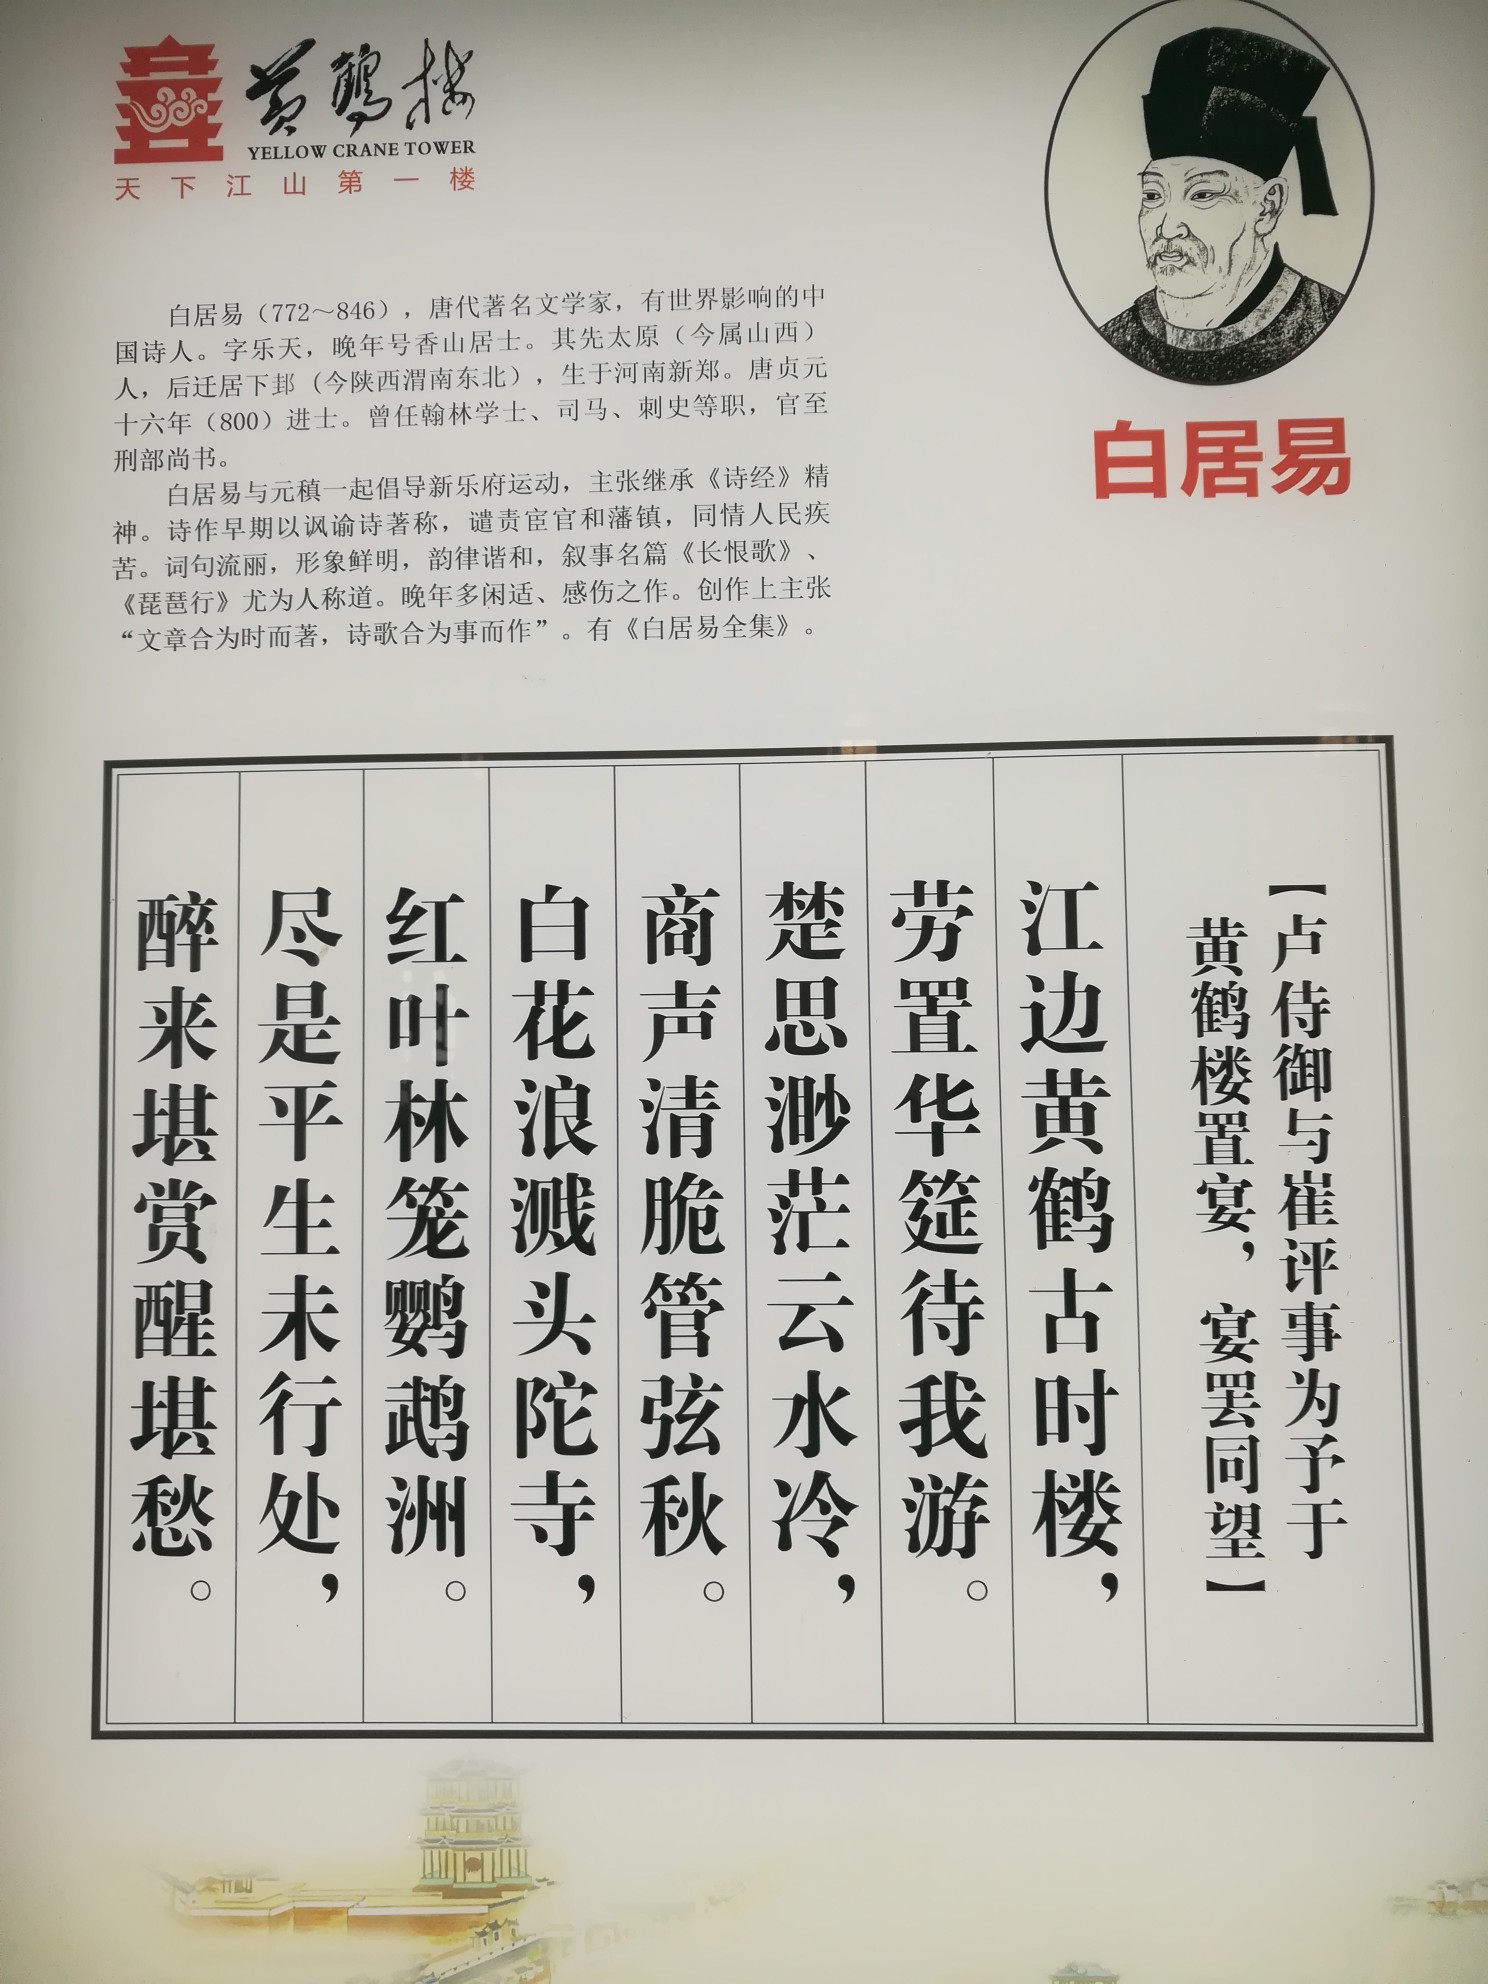 黄鹤楼
YELLOW CRANE TOWER
天下江山第一楼
白居易
白居易（772～846），唐代著名文学家，有世界影响的中
国诗人。字乐天，晚年号香山居士。其先太原（今属山西）
人，后迁居下邽（今陕西渭南东北），生于河南新郑。唐贞元
十六年（800）进士。曾任翰林学士、司马、刺史等职，官至
刑部尚书。
白居易与元稹一起倡导新乐府运动，主张继承《诗经》精
神。诗作早期以讽谕诗著称，谴责宦官和藩镇，同情人民疾
苦。词句流丽，形象鲜明，韵律谐和，叙事名篇《长恨歌》、
《琵琶行》尤为人称道。晚年多闲适、感伤之作。创作上主张
“文章合为时而著，诗歌合为事而作”。有《白居易全集》。
【卢侍御与崔评事为予于
黄鹤楼置宴，宴罢同望】
江边黄鹤古时楼，
劳置华筵待我游。
楚思渺茫云水冷，
商声清脆管弦秋。
白花浪溅头陀寺，
红叶林笼鹦鹉洲。
尽是平生未行处，
醉来堪赏醒堪愁。